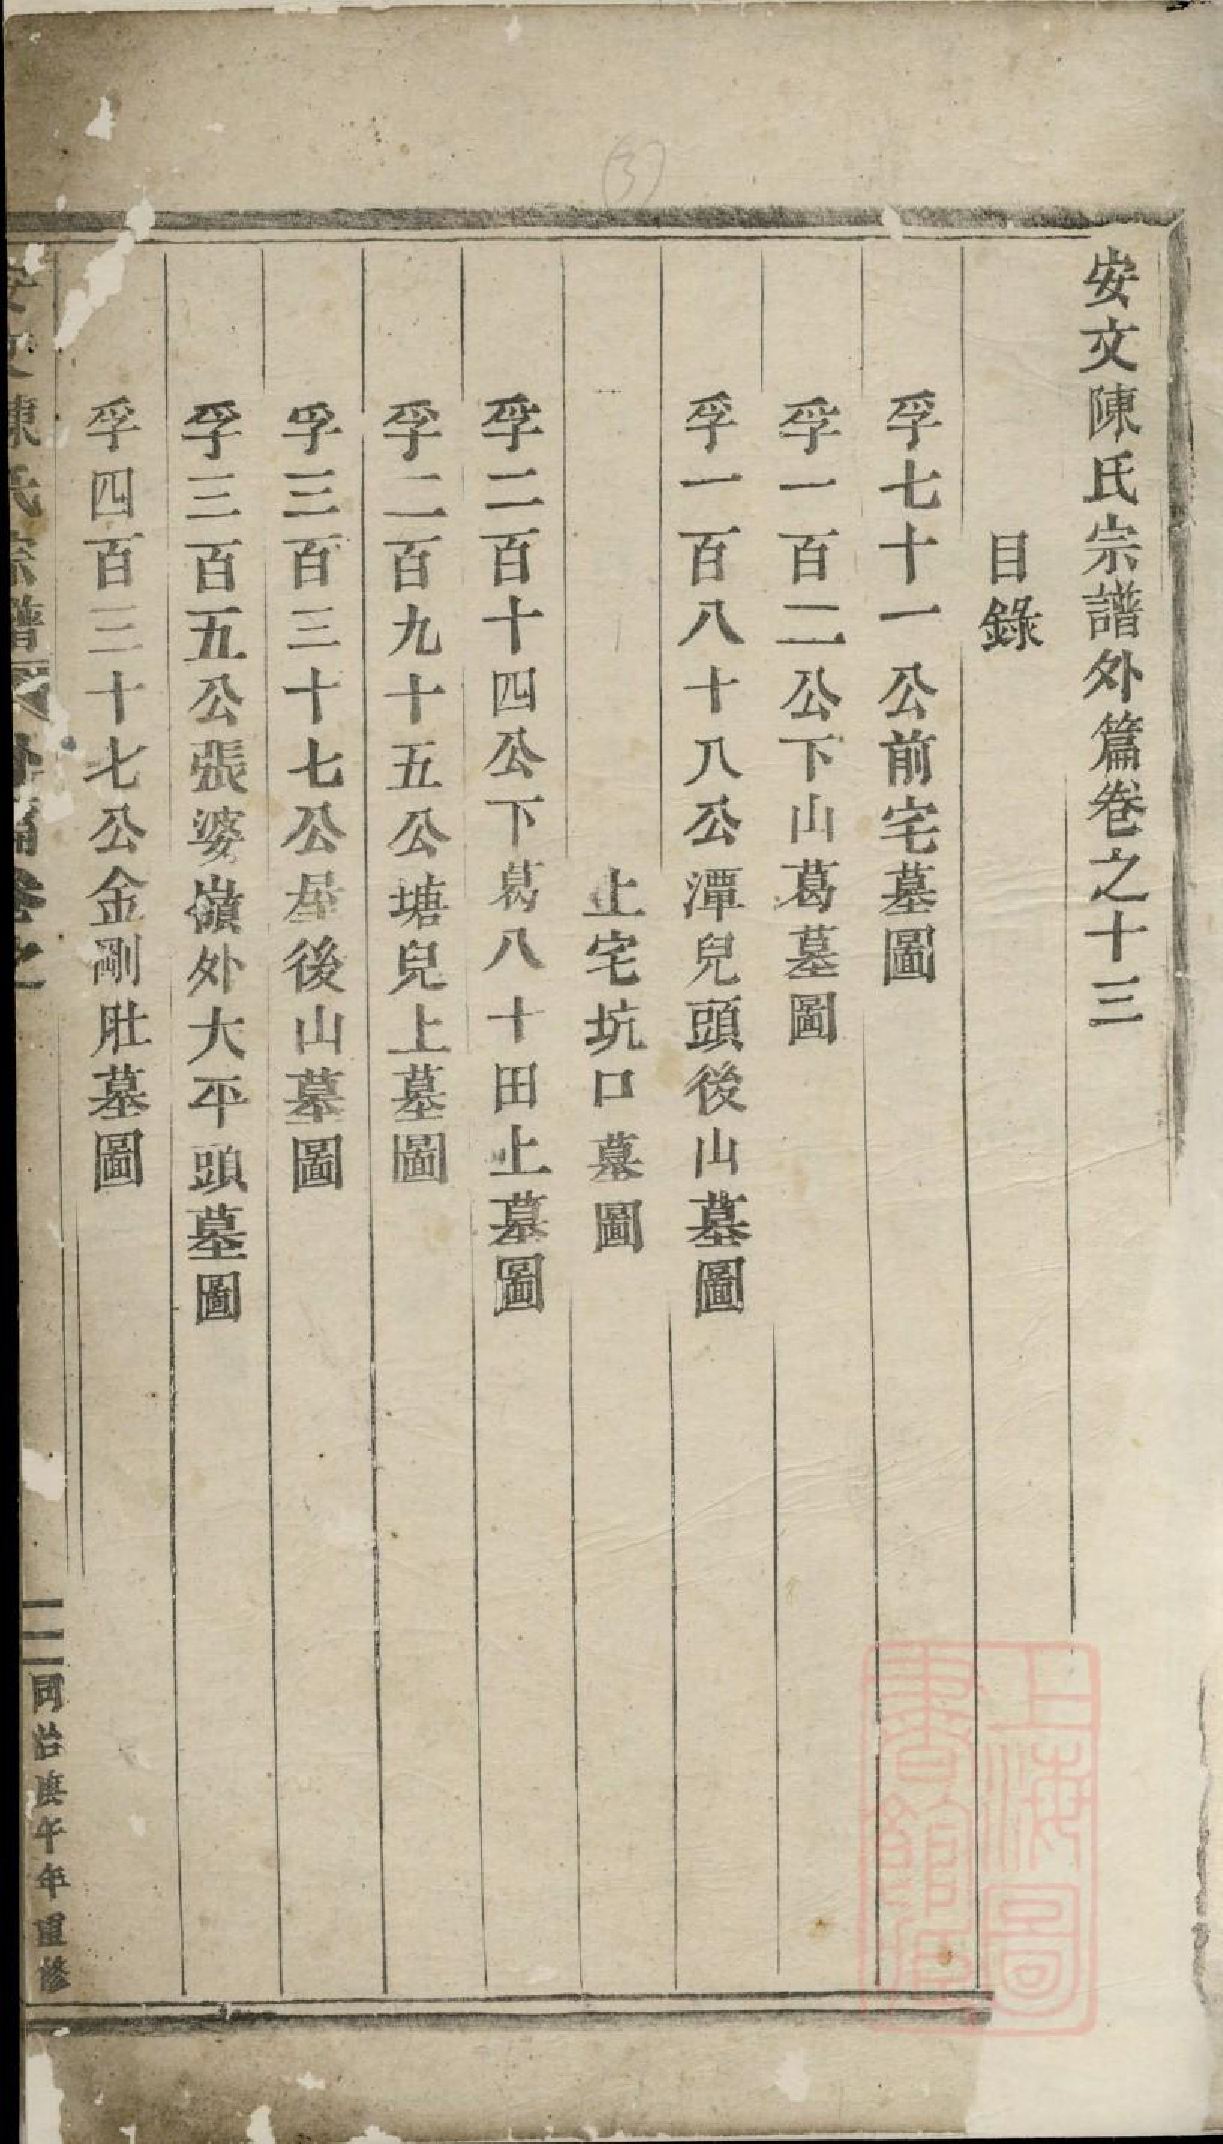 安文陳氏宗譜外篇卷之十三
目錄
孚七十一公前宅墓圖
孚一百二公下山葛墓圖
孚一百八十八公潭兒頭後山墓圖
上宅坑口墓圖
孚二百十四公下葛八十田上墓圖
孚二百九十五公塘兒上墓圖
孚三百三十七公屋後山墓圖
孚三百五公張婆嶺外大平頭墓圖
孚四百三十七公金剛肚墓圖
安文陳氏宗譜 外篇卷之
二 同治庚午年重修
上海圖書館藏
3